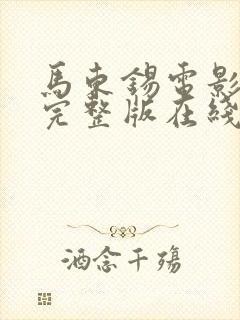 馬東錫電影
完整版在綫
酒念千殤